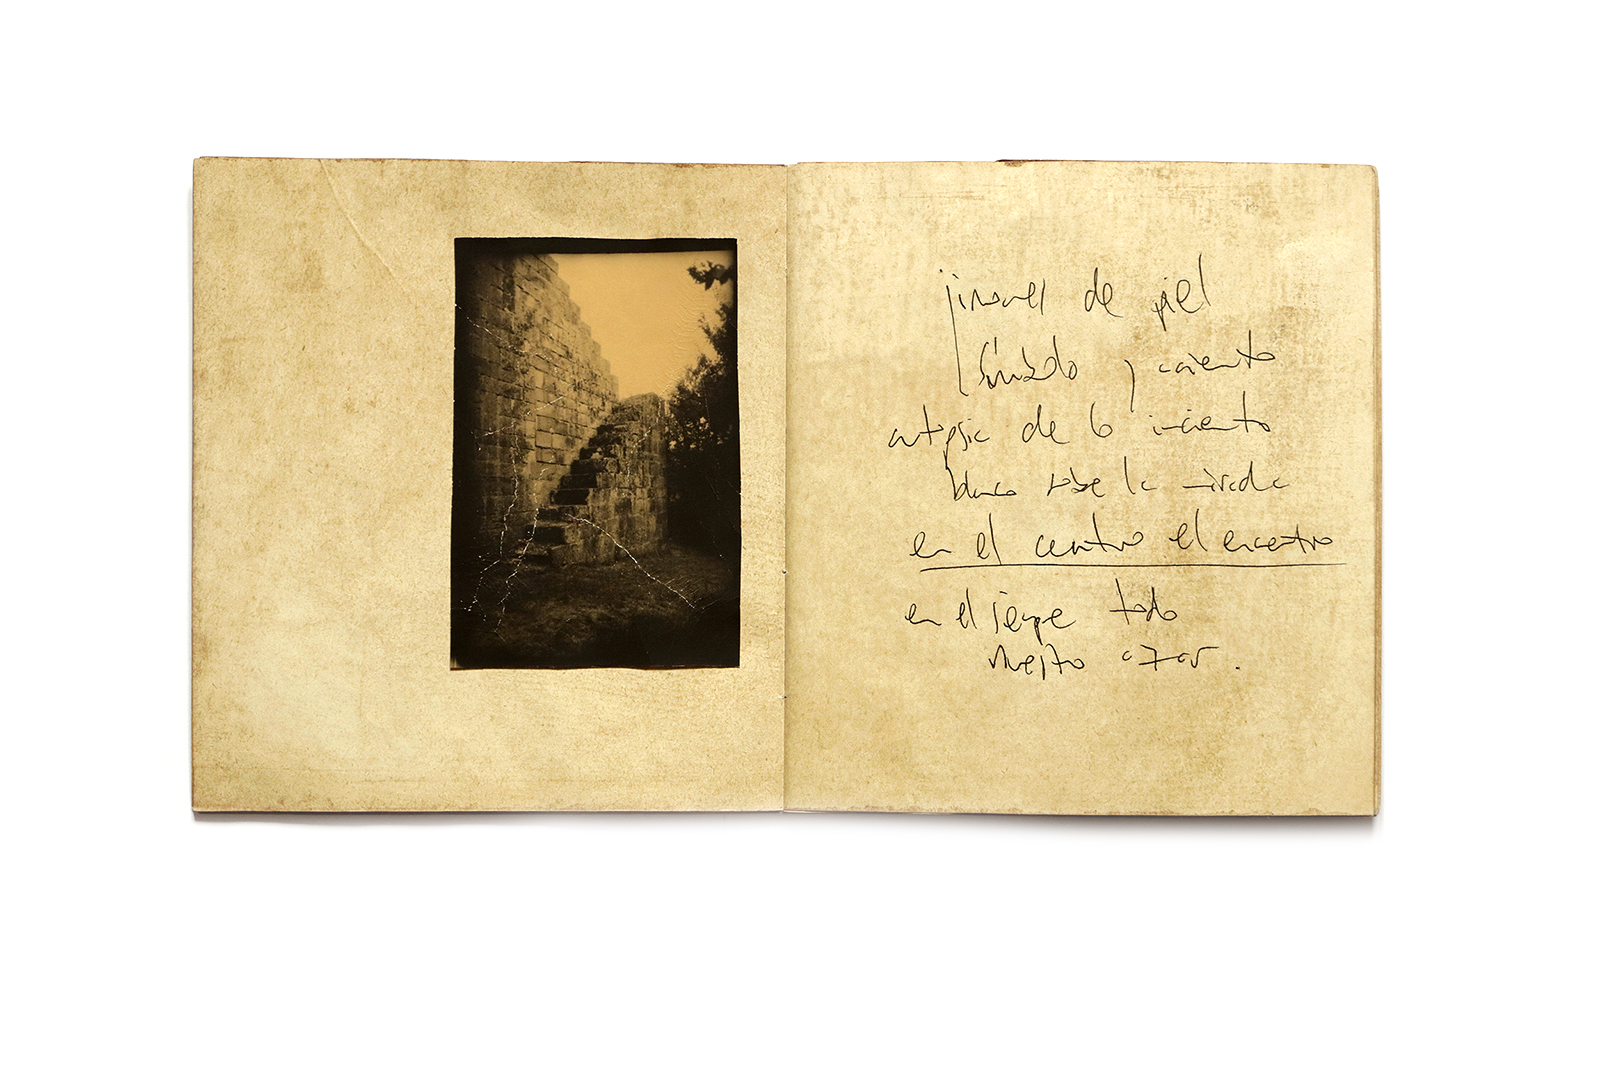 jirones de piel
símbolo y cimiento
autopsia de lo incierto
blanco sobre la mirada
en el centro el encentro
en el siempre todo
nuestro azar.